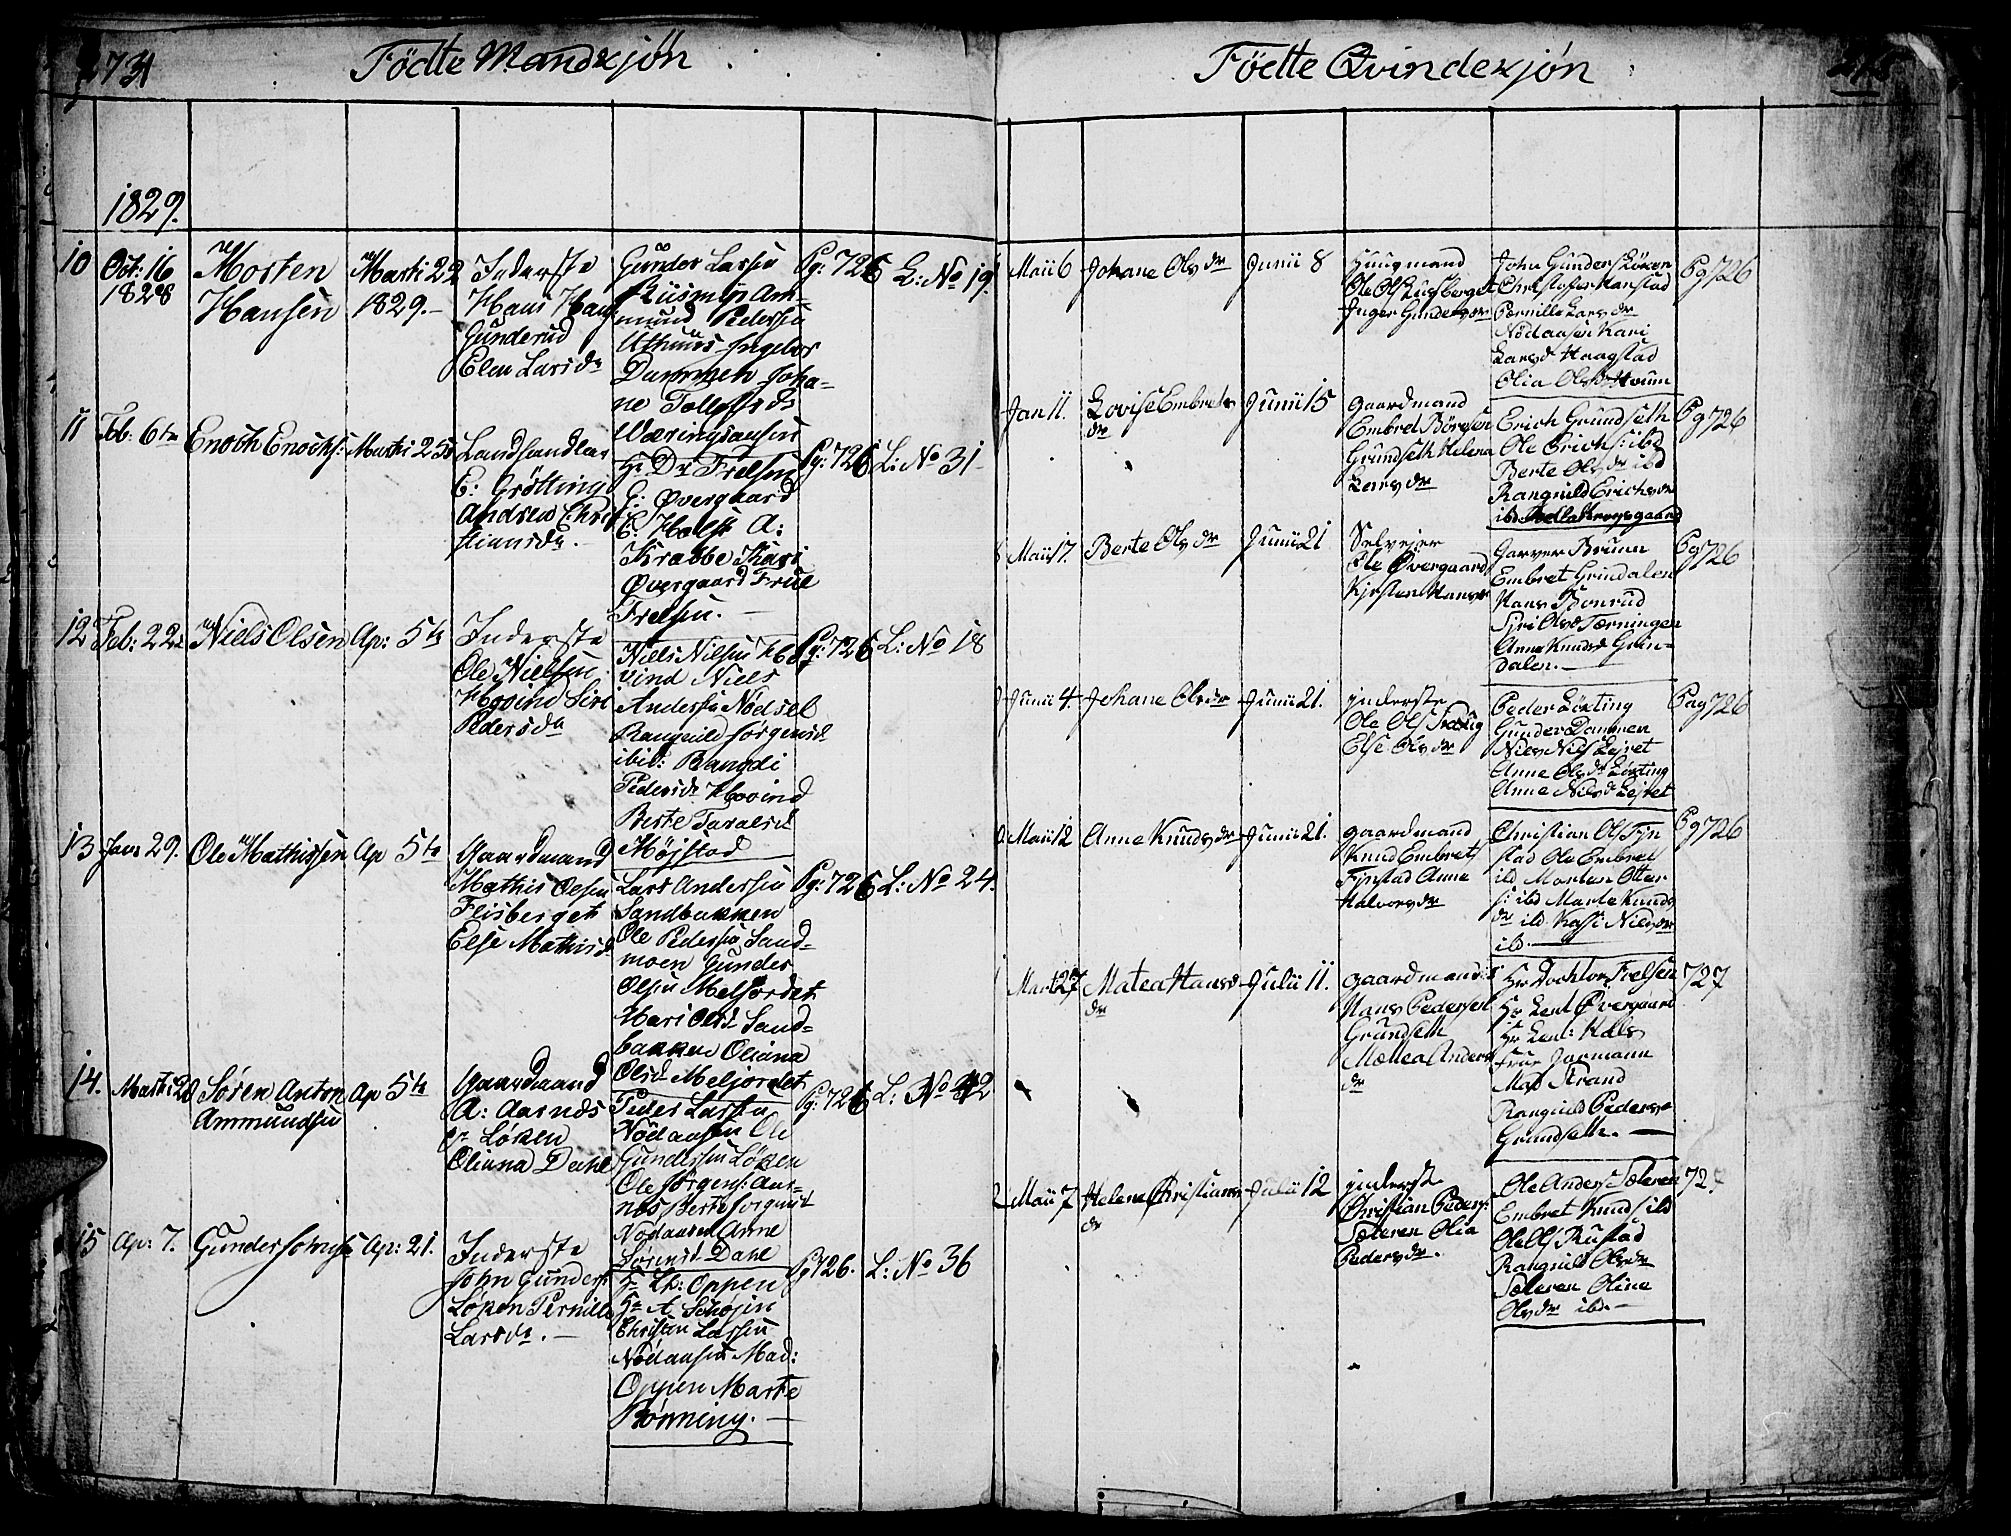 Födte Mandkjön
1829.
10
Oct: 16
1828
Morten
Hansen
Marti 22
1829.-
Inderste
Hans Hans
Gunderud
Elen Larsdr
Gunder Larsen
Kiismyr Am-
mund Pedersen
Uthuus Ingebor
Dammen Joha-
ne Tollefsdr
Wæringsaasen
Pg: 726
L: No 19.
11
Feb: 6te
Enoch Enochs:
Marti 25
Landhandler
E: Grötting
Andrea Chri
stiansdr. -
Hr Dr Frelsen
G: Øvergaard
C: Hals A:
Krabbe Kari
Øvergaard Frue
Frelsen. -
Pg: 726
L: No 31-
12
Feb: 22
Niels Olsen
Ap: 5te
Inderste
Ole Nielsen
Hovind Siri
Pedersdr
Niels Nilsen Ho
vind Niels
Andersen Nødsel
Rangnild Jörgensd
ibid: Rangdi
Pedersdr Hovind
Berte Taralsd
Möjstad
Pg: 726
L: No 18
13
Jan 29.
Ole Mathissen
Ap 5te
Gaardmand
Mathis Olsen
Flisberget
Else Mathisd
Lars Andersen
Sandbakken
Ole Pedersen Sand-
moen Gunder
Olsen Meljordet
Mari Olsd Sand-
bakken Oliana
Olsd Meljordet
Pg: 726
L: No 24.
14.
Marti 20
Sören Anton
Ammundsen
Ap 5te
Gaardmand
A: Aarnæs
Löken
Oliana Dahl
Peder Larsen
Nödaasen Ole
Gundersen Löken
Ole Jörgens: Aar-
næs Berte Jörgensd
Nödaasen Anne
Sörensd Dahl
Pg: 726
L: No 42
15
Ap: 7.
Gunder Johns
Ap: 21.
Inderste
John Gunders:
Löken Pernille
Larsdr. -
Hr Ch: Oppen
Hr A Schöjen
Christen Larsen
Nödaasen Mad:
Oppen Marte
Rönning. -
Pg 726.
L: No 36
Födte Qvindekjön
Maii 6
Johane Olsdr
Junii 8
Huusmand
Ole Ols Lusberget
Inger Gundersdr
John Gunders Löken
Christoffer Hanstad
Pernille Larsdr
Nödaasen Kari
Larsd Haagstad
Olia Olsdr Hvum
Pg 726
Jan 11.
Lovise Embrets
dr
Junii 15
Gaardmand
Embret Börgesen
Grundseth Helena
Larsdr
Erich Grundseth
Ole Erichs: ibd
Berte Olsdr ibd
Rangnild Erichsdr
ibd
Pg 726
Maii 17.
Berte Olsdr
Junii 21
Selveier
Ole Øvergaard
Kjersten Hansdr
Garver Bruun
Embret Grindalen
Hans Bonrud
Siri Olsd Tærningen
Anne Knudsd Grin-
dalen. -
Pg 726
Junii 4.
Johane Olsdr
Junii 21.
Inderste
Ole Ols
Else Olsdr
Peder Löxting
Gunder Dammen
Niels Niels Lejret
Anne Olsdr Löxting
Anne Nilsd Lejret
Pag 726
Maii 12
Anne Knudsdr
Junii 21.
Gaardmand
Knud Embrets
Fjnstad Anne
Halvorsdr
Christian Ols Fjn
stad Ole Embret
ibd Morten Otter
s: ibd Marte Knuds
dr ibd Kasi Nilsdr
ibd. -
Pg 726
Mart 27
Matea Hans
dr
Julii 11.
Gaardmand
Hans Pedersen
Grundseth
Mattea Anders
dr
Hr Docktor Frelsen
Hr Leut Øvergaard
Hr Leut: Hals
frue Jormann
Mad Strand
Rangnild Pedersd
Grundseth. -
727
Maii 7
Helene Christians
dr
Julii 12
Inderste
Christian Peders:
Sæteren Olia
Pedersdr.
Ole Anders Sæteren
Embret Knuds ibd
Ole Ols Rustad
Rangnild Olsdr
Sæteren Oline
Olsdr ibd. -
727